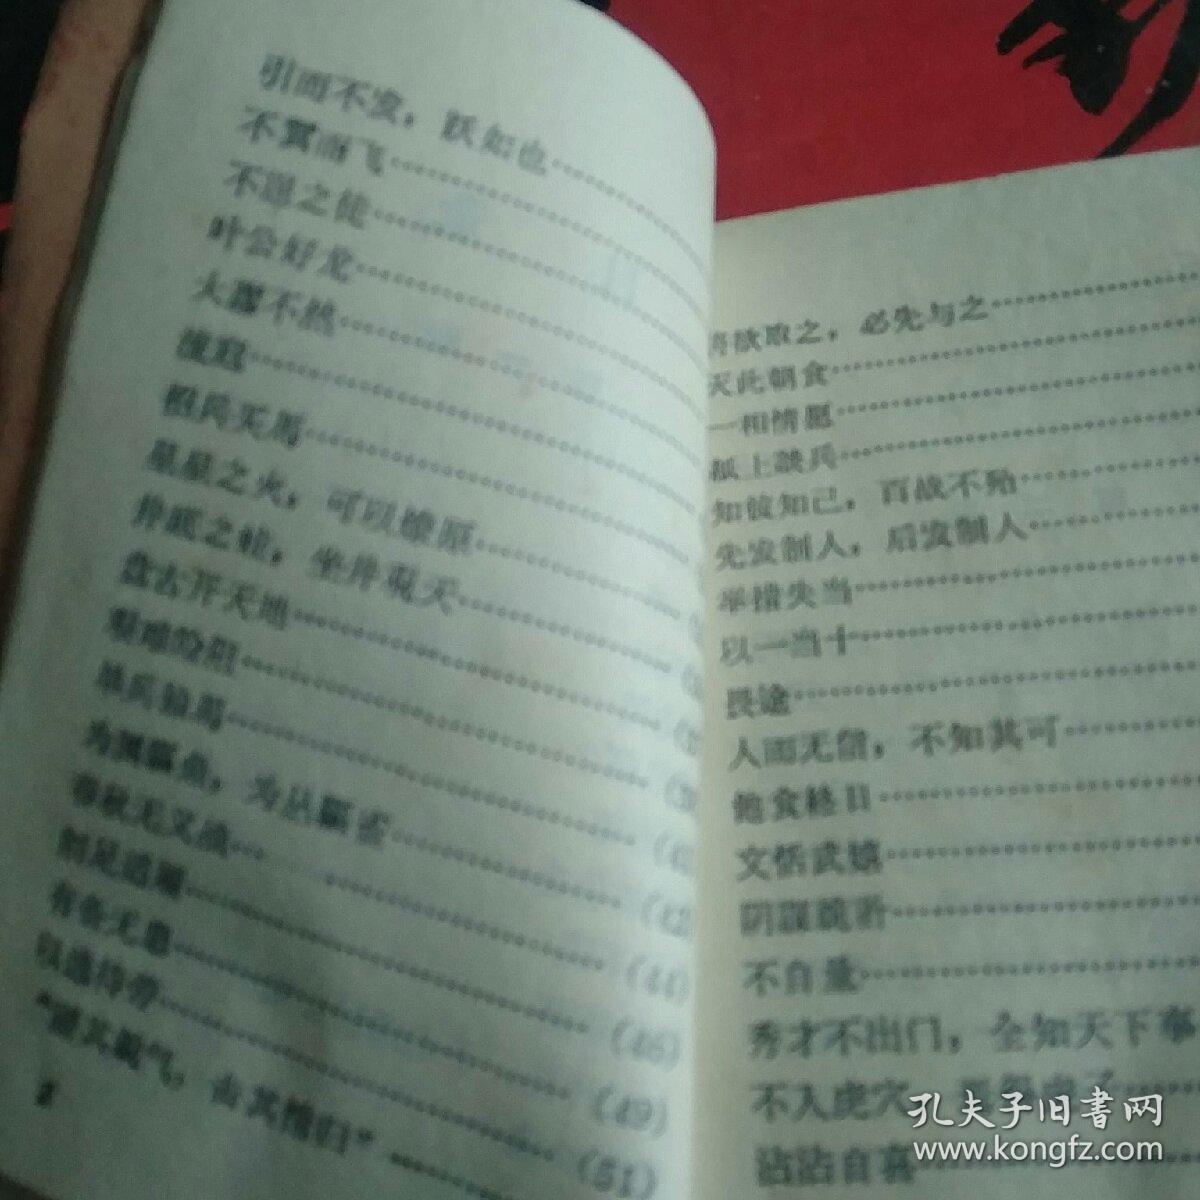 引而不发，跃如也
不翼而飞
不逞之徒
叶公好龙
大谬不然
流寇
招兵买马
星星之火，可以燎原
井底之蛙，坐井观天
盘古开天地
艰难险阻
残兵败将
为渊驱鱼，为丛驱雀
春秋无义战 (42)
削足适履 (44)
有备无患 (46)
以逸待劳 (49)
“避其锐气，击其惰归” (51)
2
将欲取之，必先与之
灭此朝食
一相情愿
纸上谈兵
知彼知己，百战不殆
先发制人，后发制人
举措失当
以一当十
畏途
人而无信，不知其可
饱食终日
文恬武嬉
阴谋诡计
不自量
秀才不出门，全知天下事
不入虎穴，焉得虎子
沾沾自喜
孔夫子旧书网
www.kongfz.com